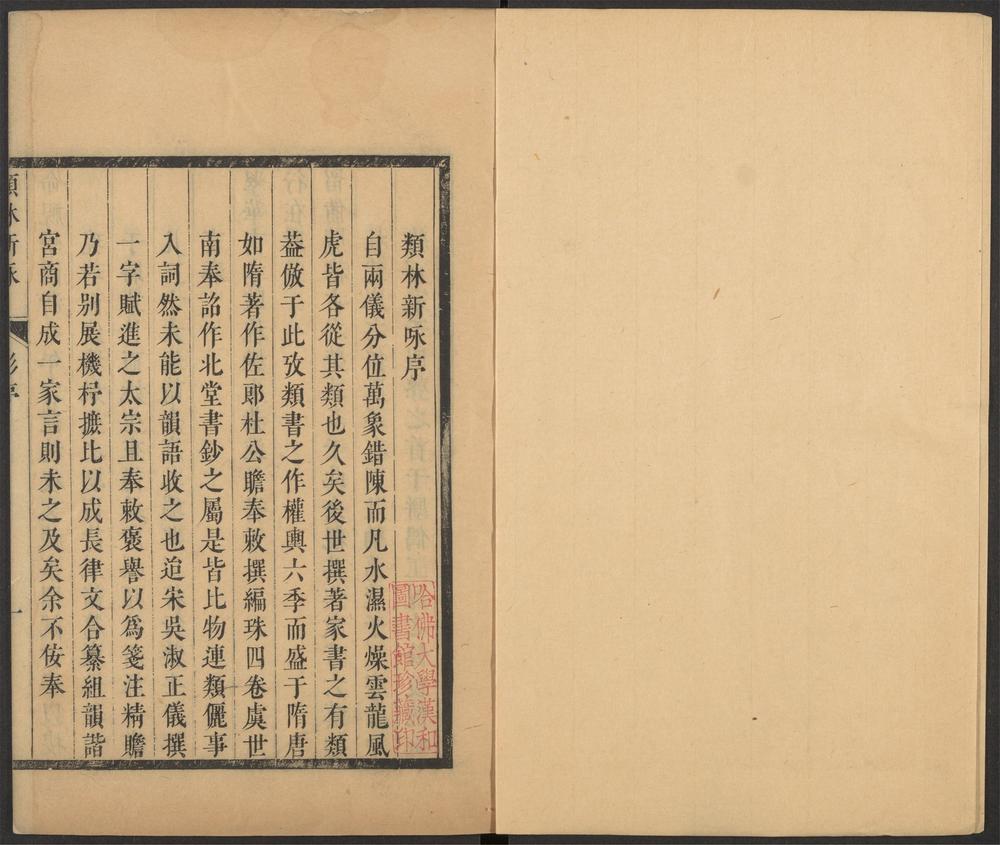 類林新咏序
自兩儀分位萬象錯陳而凡水濕火燥雲龍風
虎皆各從其類也久矣後世撰著家書之有類
葢倣于此攷類書之作權輿六季而盛于隋唐
如隋著作佐郎杜公瞻奉敕撰編珠四卷虞世
南奉詔作北堂書鈔之屬是皆比物連類儷事
入詞然未能以韻語收之也迨宋吳淑正儀撰
一字賦進之太宗且奉敕褒譽以爲箋注精贍
乃若别展機杼摭比以成長律文合纂組韻諧
宮商自成一家言則未之及矣余不佞奉
類林新咏
彭序
一
哈佛大學漢和
圖書館珍藏印